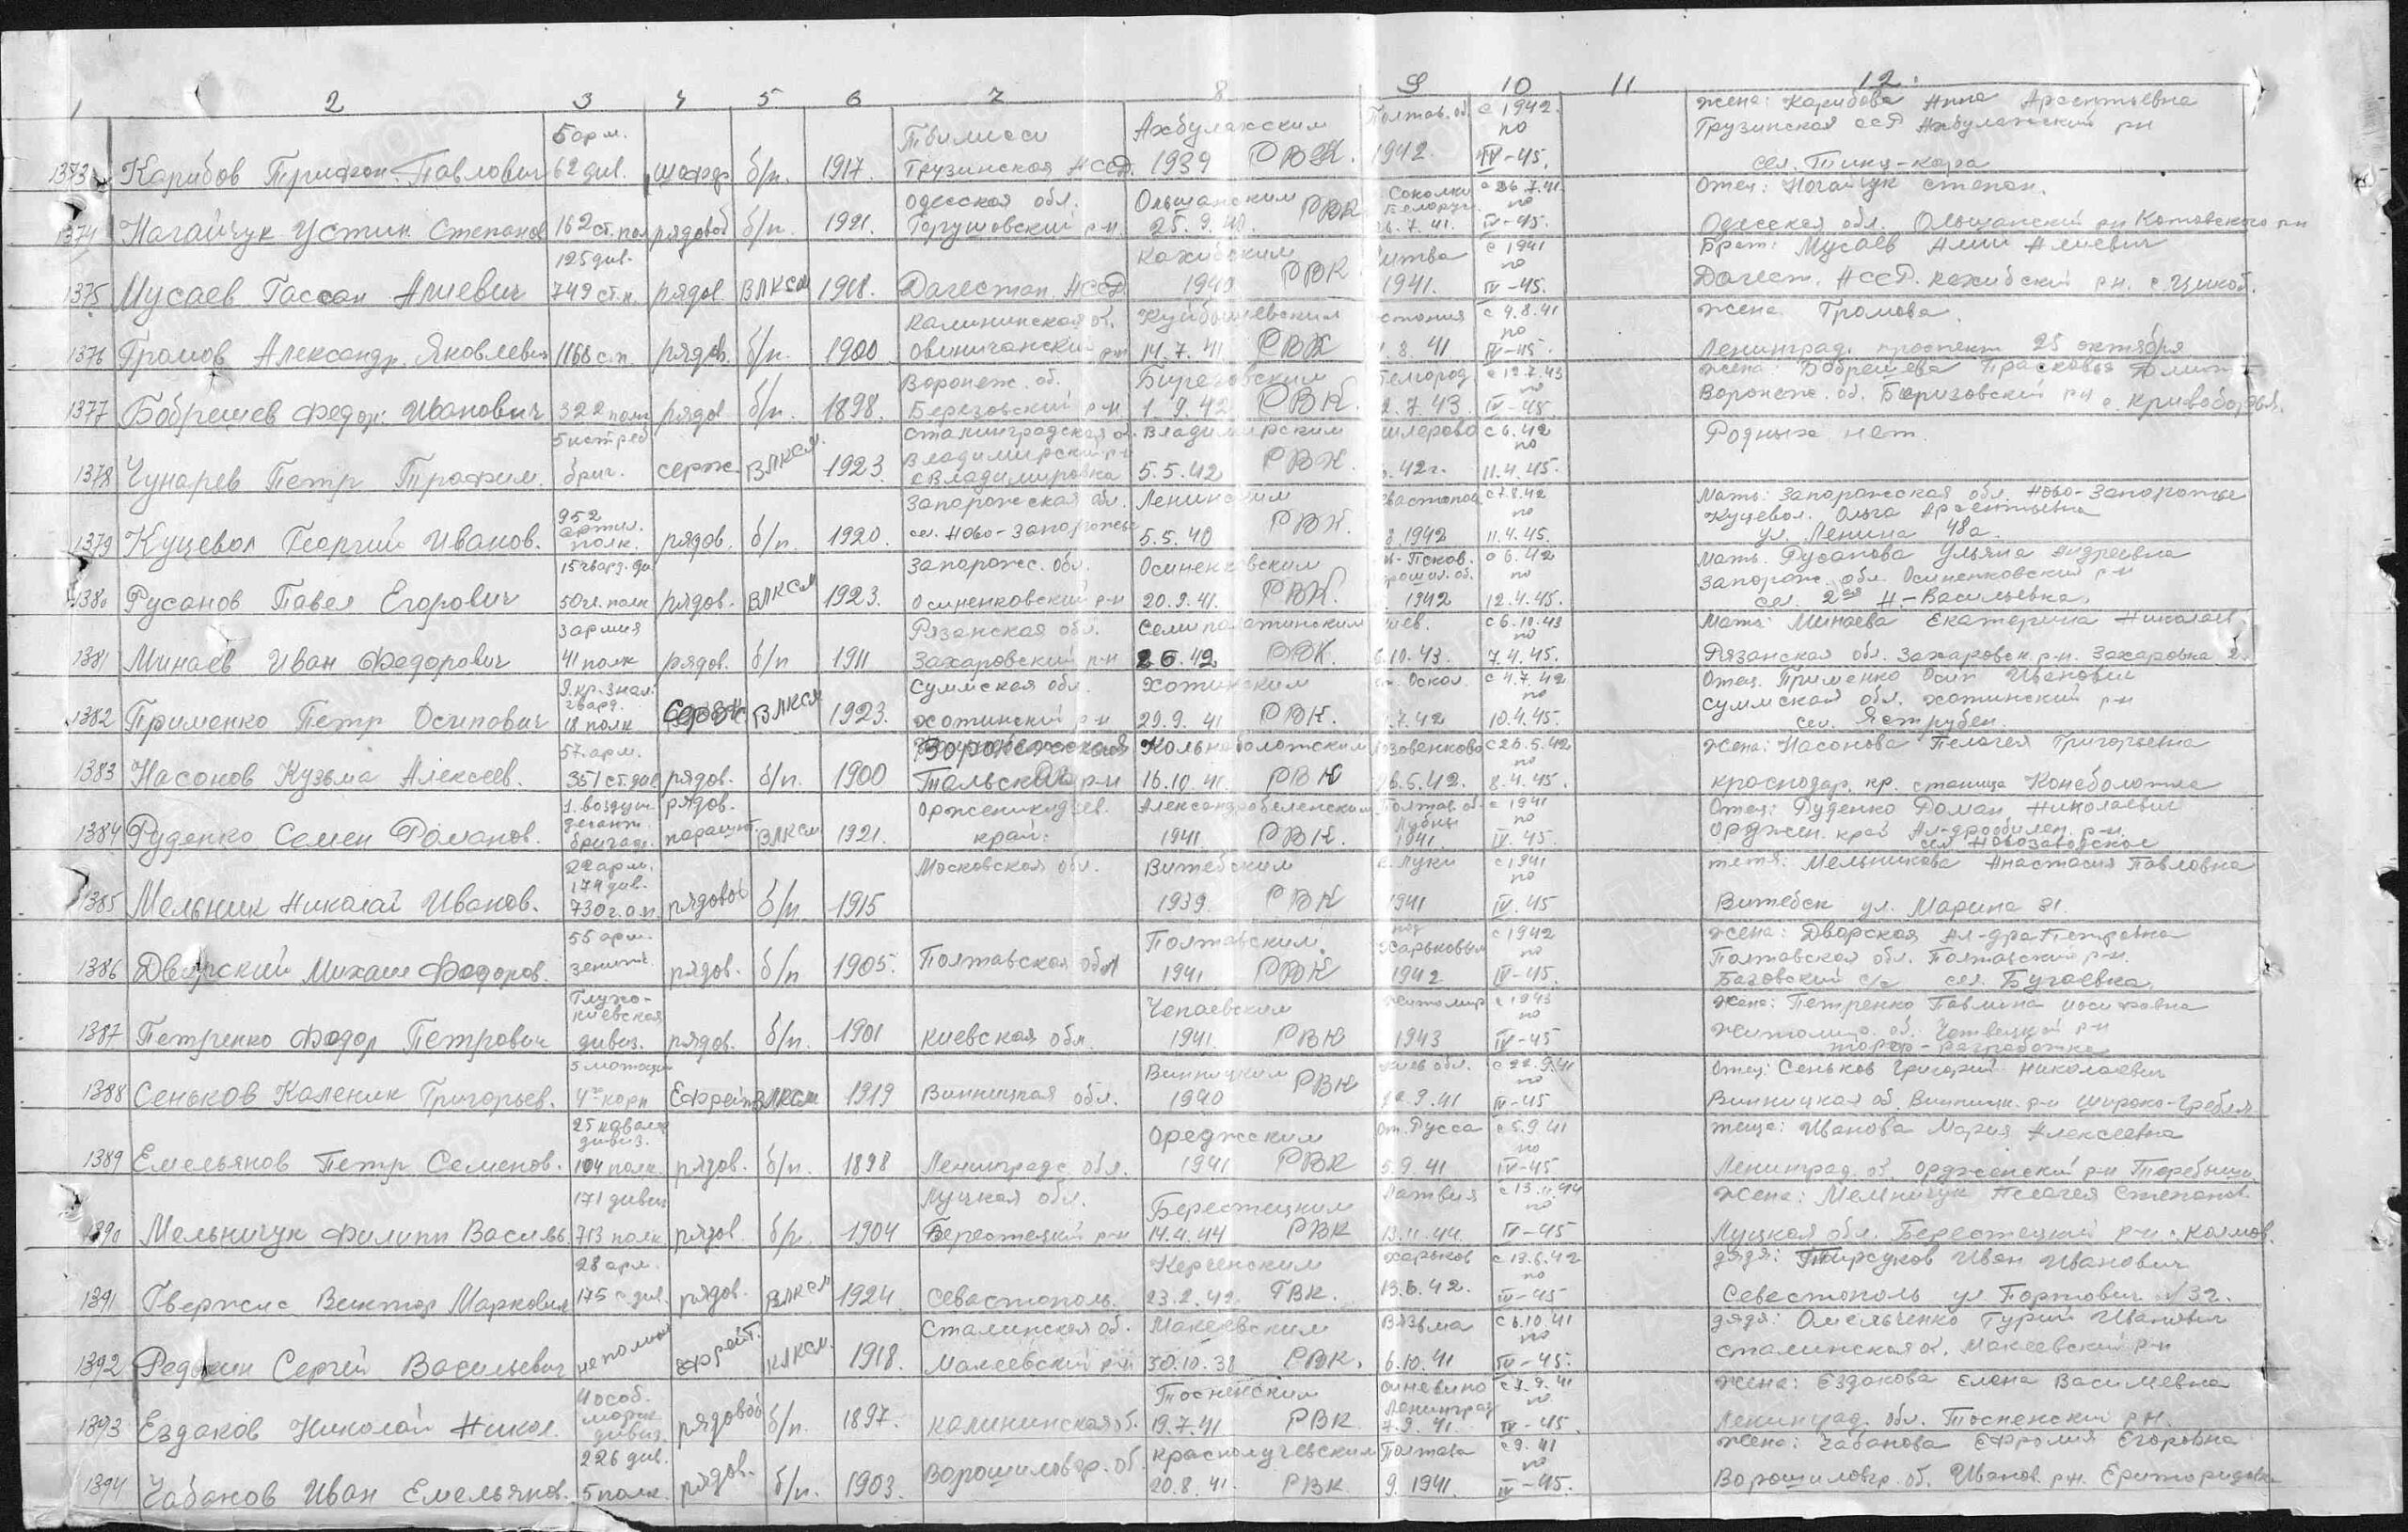 1 2 3 4 5 6 7 8 9 10 11 12
5 арм. Тбилиси Ахбулахским Полтав. об. с 1942. жена: Карибова Анна Арсентьевна
по Грузинская ССР Ахбулахский рн
1373 Карибов Трифон Павлович 62 див. шофер б/п. 1917. Грузинская АССР. 1939 РВК. 1942. IV-45. сел.
Одесская обл. Ольшанским Соколки с 26.7.41 Отец: Нагайчук степан.
Белорус. по
1374 Нагайчук Устин Степанов 162 ст. пол рядовой б/п. 1921. р-н. 25.9.40. РВК 26.7.41. IV-45. Одесская обл. Ольшанский рн Котовского рн
125 див. Кахибским Литва с 1941 Брат: Мусаев Алиевич
по
1375 Мусаев Гассан Алиевич 749 ст.п. рядов. ВЛКСМ 1918. Дагестан. АССР. 1940 РВК 1941. IV-45. Дагест. АССР. Кахибский р-н. с.
Калининская о. Куйбышевским Эстония с 9.8.41 жена Громова.
по
1376 Громов Александр Яковлевич 1168 с.п. рядов. б/п. 1900 Овиничанский рн 14.7.41 РВК 8.41 IV-45. Ленинград. проспект 25 октября
Воронеж. об. Белгород с 12.7.43 жена: Бобрешева Прасковья
по
1377 Бобрешев Федор Иванович 322 полк рядов б/п. 1898. Березовский р-н. 1.9.42 РВК. 2.7.43. IV-45. Воронеж. об. рн с. Кривоборья.
5 истреб Сталинградская о. Владимирским Миллерово с 6.42 Родных нет.
Владимирский р-н по
1378 Чунарев Петр Трофим. бриг. серж. ВЛКСМ. 1923. с Владимировка 5.5.42 РВК. 42г. 11.4.45.
952 Запорожская обл. Ленинским Севастопол с 7.8.42 Мать: Запорожская обл. Ново-Запорожье
артил. по Куцевол. Ольга Арсентьевна
1379 Куцевол Георгий Иванов. полк. рядов. б/п. 1920. сел. Ново-Запорожье 5.5.40 РВК. 8.1942 11.4.45. ул. Ленина 48а.
15 гвард. ди Запорожс. обл. Осиненковским с 6.42 Мать. Русанова Ульяна Андреевна
по Запорож. обл. Осиненковский р-н
1380 Русанов Павел Егорович 50 полк рядов. ВЛКСМ 1923. Осиненковский р-н 20.9.41. РВК. 1942 12.4.45. сел. 2ая Н-Васильевка.
3 армия Рязанская обл. Семипалатинским Киев. с 6.10.43 Мать: Минаева Екатерина Николаев.
по
1381 Минаев Иван Федорович 41 полк рядов. б/п 1911 Захаровский р-н 26.42 РВК. 6.10.43. 7.4.45. Рязанская обл. Захаровск р-н. Захаровка
9. кр. знам. Суммская обл. Хотинским ст. Оскол. с 4.7.42 Отец. Применко Осип Иванович
гвард. по Суммская обл. Хотинский р-н
1382 Применко Петр Осипович 18 полк Серж. ВЛКСМ 1923. Хотинский р-н 29.9.41 РВК. 7.42 10.4.45. сел. Яструбен.
57. арм. Воронежская Лозовеньково с 26.5.42 Жена: Насонова Пелагея Григорьевна
по
1383 Насонов Кузьма Алексеев. 351 ст. див. рядов. б/п. 1900 Тальский р-н 16.10.41. РВК 26.5.42. 8.4.45. Краснодар. кр. станица
1. воздуш рядов. Орженикидзев. Полтав. об. с 1941 Отец: Руденко Роман Николаевич
десант. Лубны по Орджен. край р-н.
1384 Руденко Семен Романов. бригаде. парашют. ВЛКСМ 1921. край. 1941 РВК. 1941. IV.45. сел Новозаводское
22 арм. Московская обл. Витебским В. Луки с 1941 тетя: Мельникова Анастасия Павловна
174 див. по
1385 Мельник Николай Иванов. 730 г.а.п. рядовой б/п. 1915 1939. РВК 1941 IV.45 Витебск ул. Марина 31.
55 арм. Полтавским под с 1942 Жена: Дворская Ал-дра Петровна
Харьковым по Полтавская обл. Полтавский р-н.
1386 Дворский Михаил Федоров. зенитч. рядов. б/п 1905. Полтавская обл 1941 РВК 1942 IV-45. с/с сел. Бугаевка.
Глухо- Чепаевским Житомир с 1943 Жена: Петренко Павлина Иосифовна
киевская по Житомир. об. р-н
1387 Петренко Федор Петрович дивиз. рядов. б/п. 1901 Киевская обл. 1941. РВК 1943 IV-45 торф-разработка
Винницким Киев обл. с 22.9.41 Отец: Сеньков Григорий Николаевич
по
1388 Сеньков Каленик Григорьев. корп Ефрейт ВЛКСМ 1919 Винницкая обл. 1940 РВК 22.9.41 IV-45 Винницкая об. Винницк. р-н Широко-Гребля
25 кавалер Ореджским Ст. Русса с 5.9.41 теща: Иванова Мария Алексеевна
дивиз. по
1389 Емельянов Петр Семенов. 104 полк. рядов. б/п. 1898 Ленинградс. обл. 1941 РВК 5.9.41 IV-45 Ленинград. об. р-н
171 дивиз Луцкая обл. Берестецким Латвия с 13.11.44 Жена: Мельничук Пелагея Степанов.
по
1390 Мельничук Филипп Василь 713 полк рядов. б/п. 1904 Берестецкий р-н 14.4.44 РВК 13.11.44 IV-45 Луцкая обл. Берестецкий р-н
28 арм. Керченским Харьков с 13.6.42 дядя: Тирсуков Иван Иванович
по
1391 Гвержис Виктор Маркович 175 с. див. рядов. ВЛКСМ 1924. Севастополь. 23.2.42. ГВК. 13.6.42. IV-45 Севастополь ул 32.
Сталинская об. Макеевским Вязьма с 6.10.41 дядя: Омельченко Гурий Иванович
по
1392 Сергей Васильевич не помнит ефрейт. 1918. Макеевский р-н 30.10.38 РВК. 6.10.41 IV-45. Сталинская о. Макеевский р-н
4 особ. Тосненским Синевино с 7.9.41 Жена: Ездакова Елена Васильевна
морск. Ленинград по
1393 Ездаков Николай Никол. дивиз. рядовой б/п. 1897. Калининская о. 19.7.41 РВК 7.9.41. IV-45. Ленинград. обл. Тосненский р-н.
226 див. Краснолучевским Полтава с 9.41 Жена: Чабанова Ефромия Егоровна
по
1394 Чабанов Иван Емельянов. 5 полк. рядов. б/п. 1903. Ворошиловгр. об. 20.8.41. РВК 9.1941. IV-45. Ворошиловгр. об. Иванов. р-н.